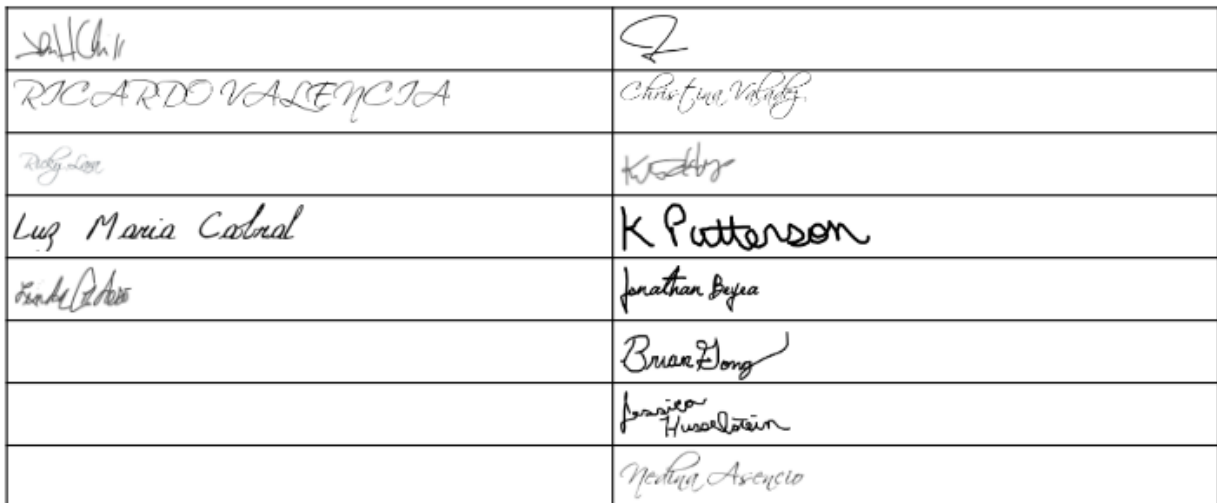 RICARDO VALENCIA
Christina Valadez
Ricky Lara
Luz Maria Cabral
K Patterson
Linda
Jonathan Beyea
Brian Gong
Jessica
Husselstein
Nedina Asencio